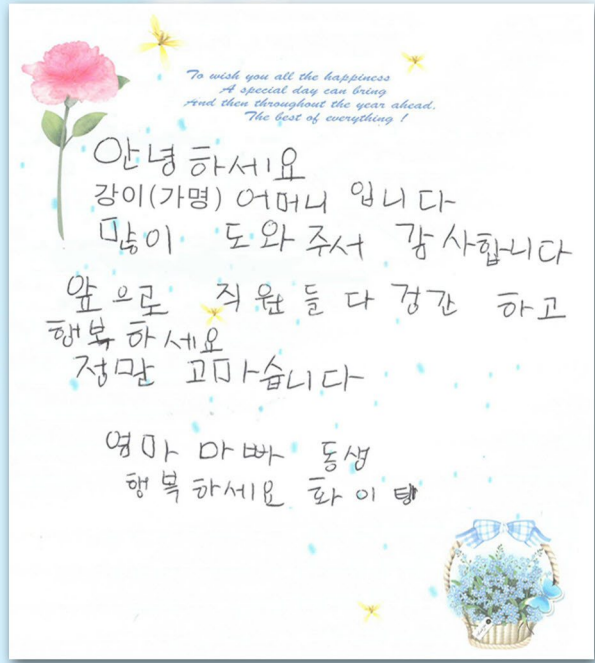 To wish you all the happiness
A special day can bring
And then throughout the year ahead.
The best of everything !
안녕하세요
강이(가명) 어머니 입니다
많이 도와주서 감사합니다
앞으로 직원들 다 겅간 하고
행복하세요
정말 고마습니다
엄마 아빠 동생
행복하세요 화이탕